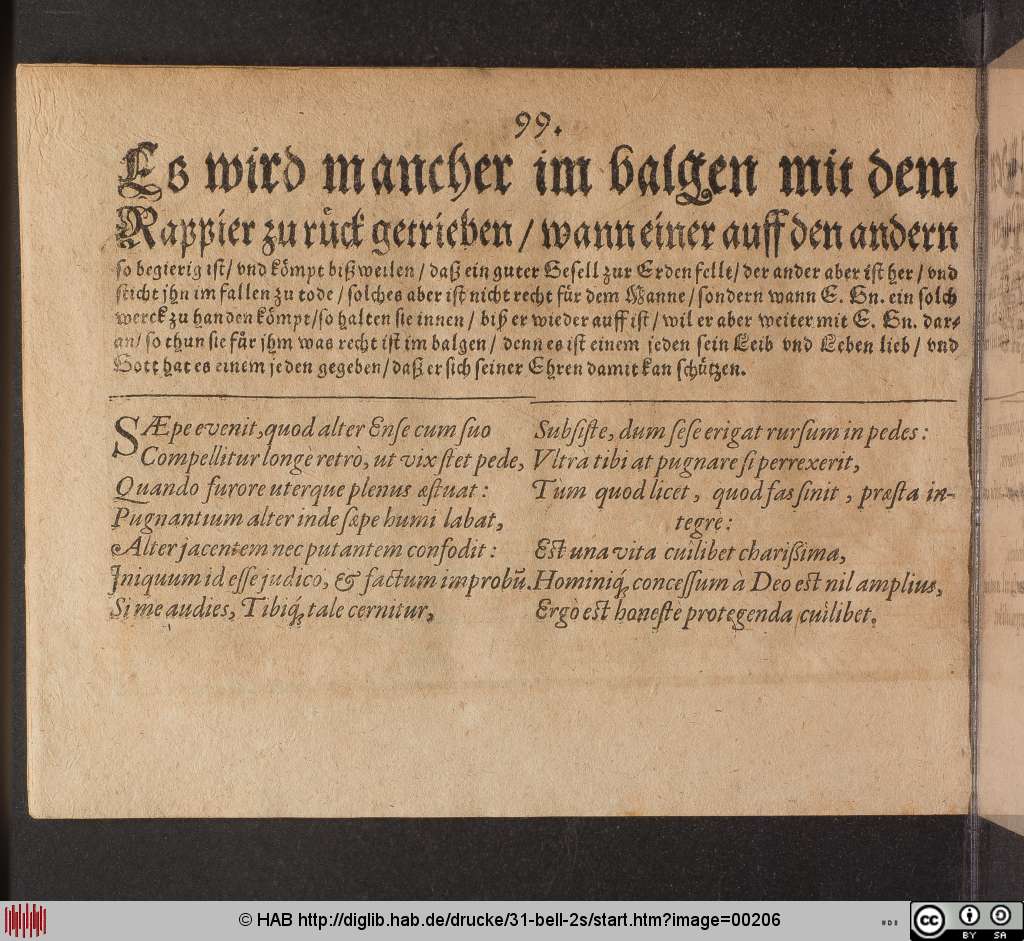 99.
Es wird mancher im balgen mit dem
Rappier zu rück getrieben / wann einer auff den andern
so begierig ist / vnd kömpt bißweilen / daß ein guter Gesell zur Erden felle / der ander aber ist her / vnd
sticht jhn im fallen zu tode / solches aber ist nicht recht für dem Manne / sondern wann E. Gn. ein solch
werck zu handen kömpt / so halten sie innen / biß er wieder auff ist / wil er aber weiter mit E. Gn. dar-
an / so thun sie für jhm was recht ist im balgen / denn es ist einem jeden sein Leib vnd Leben lieb / vnd
Gott hat es einem jeden gegeben / daß er sich seiner Ehren damit kan schützen.
SÆpe evenit, quod alter Ense cum suo
Compellitur longè retrò, ut vix stet pede,
Quando furore uterque plenus æstuat:
Pugnantium alter inde sæpe humi labat,
Alter jacentem nec putantem confodit:
Iniquum id esse judico, & factum improbū.
Si me audies, Tibiq́; tale cernitur,
Subsiste, dum sese erigat rursum in pedes:
Vltrà tibi at pugnare si perrexerit,
Tùm quod licet, quod fas sinit, præsta in-
tegre:
Est una vita cuilibet charißima,
Hominiq́; concessum à Deo est nil amplius,
Ergò est honeste protegenda cuilibet.
© HAB http://diglib.hab.de/drucke/31-bell-2s/start.htm?image=00206
cc
BY SA